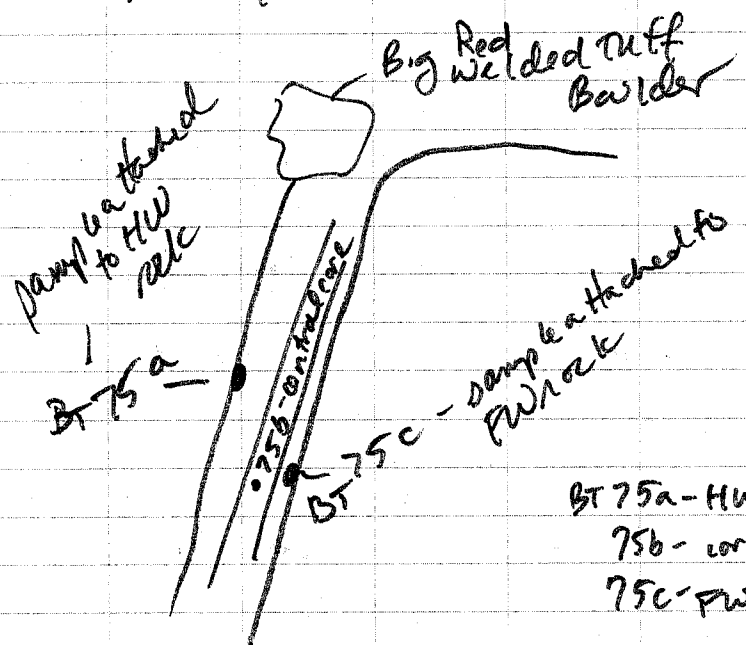 Big Red
Welded Tuff
Boulder
sample attached
to HW
rock
BT 75a
75b - central core
BT 75c - sample attached to
FW rock
BT 75a - HW
75b - cor
75c - FW